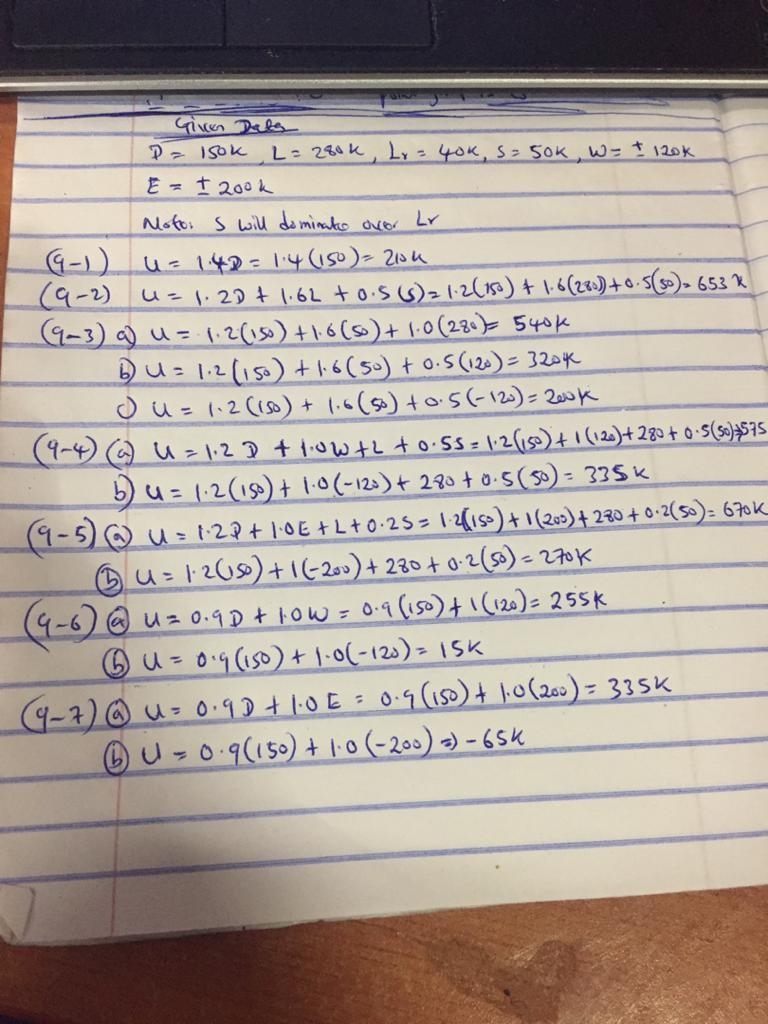 Given Data
D = 150K, L = 280K, Lr = 40K, S = 50K, W = ± 120K
E = ± 200K
Note: S will dominate over Lr
(9-1) U = 1.4D = 1.4(150) = 210K
(9-2) U = 1.2D + 1.6L + 0.5(S) = 1.2(150) + 1.6(280) + 0.5(50) = 653 K
(9-3) a) U = 1.2(150) + 1.6(50) + 1.0(280) = 540K
b) U = 1.2(150) + 1.6(50) + 0.5(120) = 320K
c) U = 1.2(150) + 1.6(50) + 0.5(-120) = 200K
(9-4) (a) U = 1.2 D + 1.0W + L + 0.5S = 1.2(150) + 1(120) + 280 + 0.5(50) = 575
b) U = 1.2(150) + 1.0(-120) + 280 + 0.5(50) = 335K
(9-5) (a) U = 1.2D + 1.0E + L + 0.2S = 1.2(150) + 1(200) + 280 + 0.2(50) = 670K
(b) U = 1.2(150) + 1(-200) + 280 + 0.2(50) = 270K
(9-6) (a) U = 0.9D + 1.0W = 0.9(150) + 1(120) = 255K
(b) U = 0.9(150) + 1.0(-120) = 15K
(9-7) (a) U = 0.9D + 1.0E = 0.9(150) + 1.0(200) = 335K
(b) U = 0.9(150) + 1.0(-200) => -65K